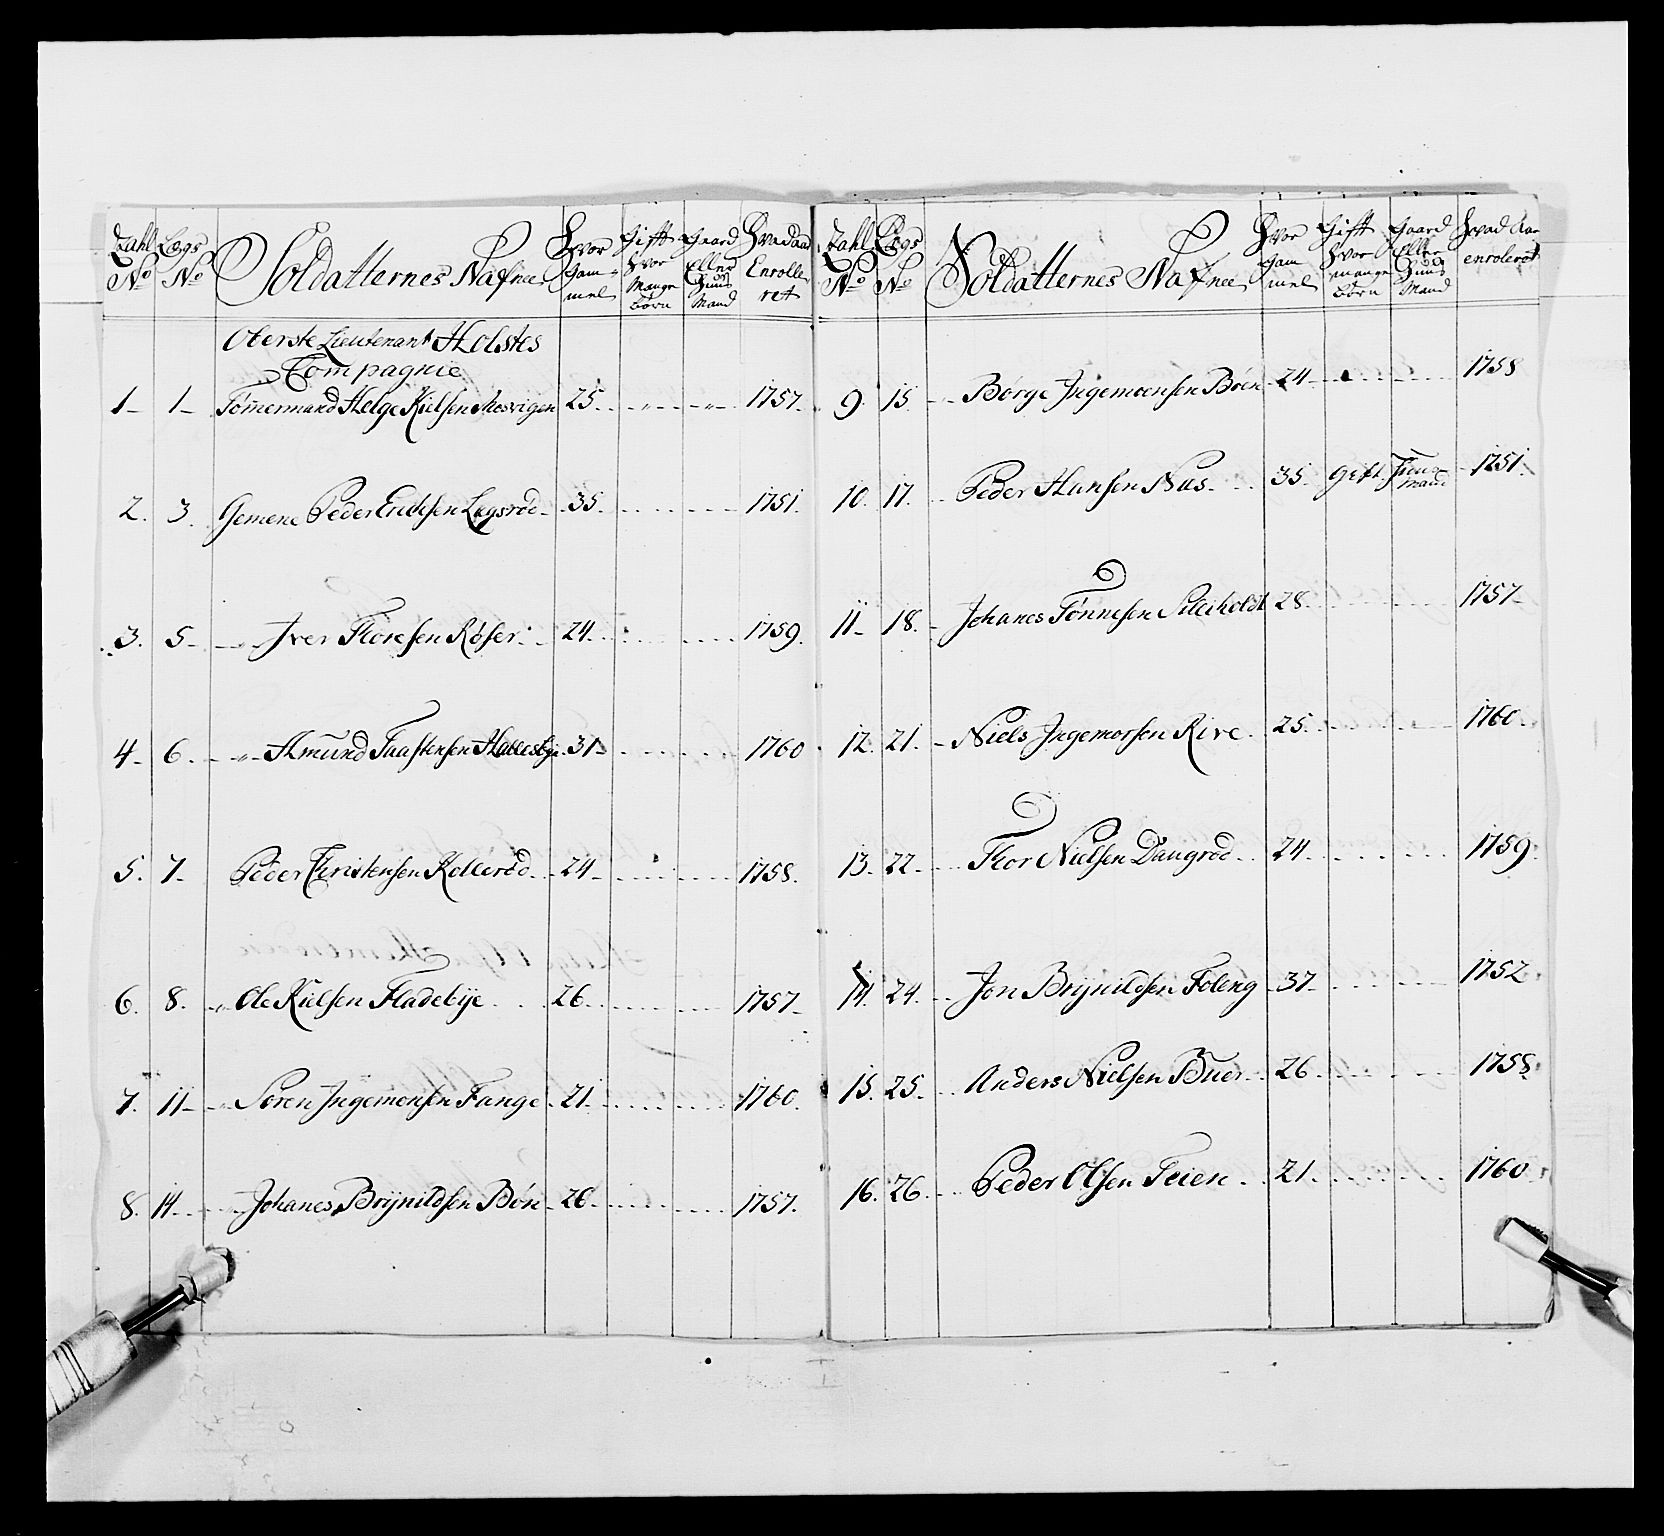 Zahl No Lægs No Soldatternes Nafne Hvor Gammel Gift Hvor Mange børn Gaard Eller Huus Mand Hvad aar Enrolleret
Oberste Lieutenant Holstes
Compagnie
1 1 Tömermand Helge Kielsen Mosvigen 25 1757
2. 3. Gemene Peder Erichsen Lagsröd 35 1751
3. 5 Iver Thoresen Röser 24 1759
4 6 Amund Taastensen Hallesbye 31 1760
5. 7 Peder Christensen Kollerød 24 1758
6. 8. Ole Kielsen Fladebÿe 26 1757
7. 11 Søren Ingemonsen Fange 21 1760
8. 14 Johanes Brÿnildsen Bön 26 1757
Zahl No Lægs No Soldatternes Nafne Hvor Gammel Gift Hvor mange børn Gaard Eller Huus Mand Hvad Aar enroleret
9. 15 Börge Ingemoensen Böen 24 1758
10. 17. Peder Hansen Næs 35 Gift Huus mand 1751
11 18. Johanes Tönnesen Sileiholdt 28 1757
12. 21. Niels Ingemorsen Rive 25 1760
13. 22 Thor Nielsen Daugröd 24 1759
14. 24. Jon Brÿnildsen Foleng 37 1752
15. 25. Anders Nielsen Buer 26 1758
16. 26. Peder Olsen Teien 21 1760